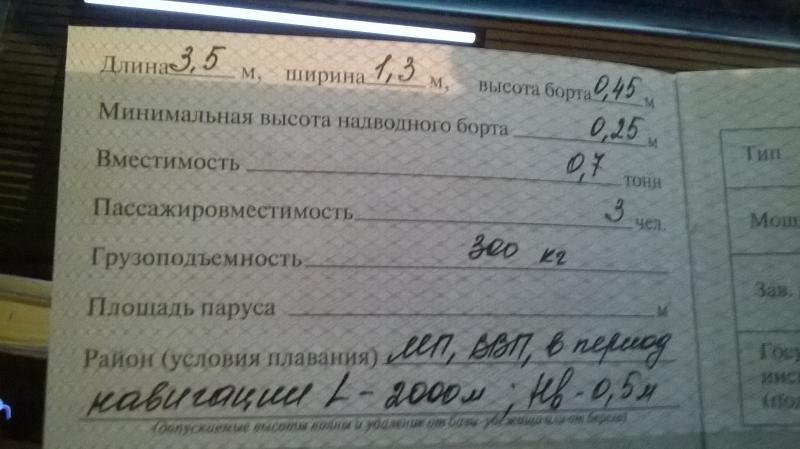 Длина 3,5 м, ширина 1,3 м, высота борта 0,45 м
Минимальная высота надводного борта 0,25 м
Вместимость 0,7 тонн
Пассажировместимость 3 чел.
Грузоподъемность 300 кг
Площадь паруса м
Район (условия плавания) МП, ВВП, в период
навигации L - 2000м ; Hв - 0,5м
(допускаемые высоты волны и удаление от базы-убежища или от берега)
Тип
Мощ
Зав.
Госу
инсп
(по